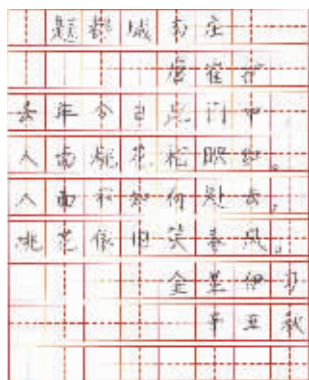 题都城南庄
唐崔护
去年今日此门中
人面桃花相映红。
人面不知何处去,
桃花依旧笑春风。
金 伊书
辛丑秋